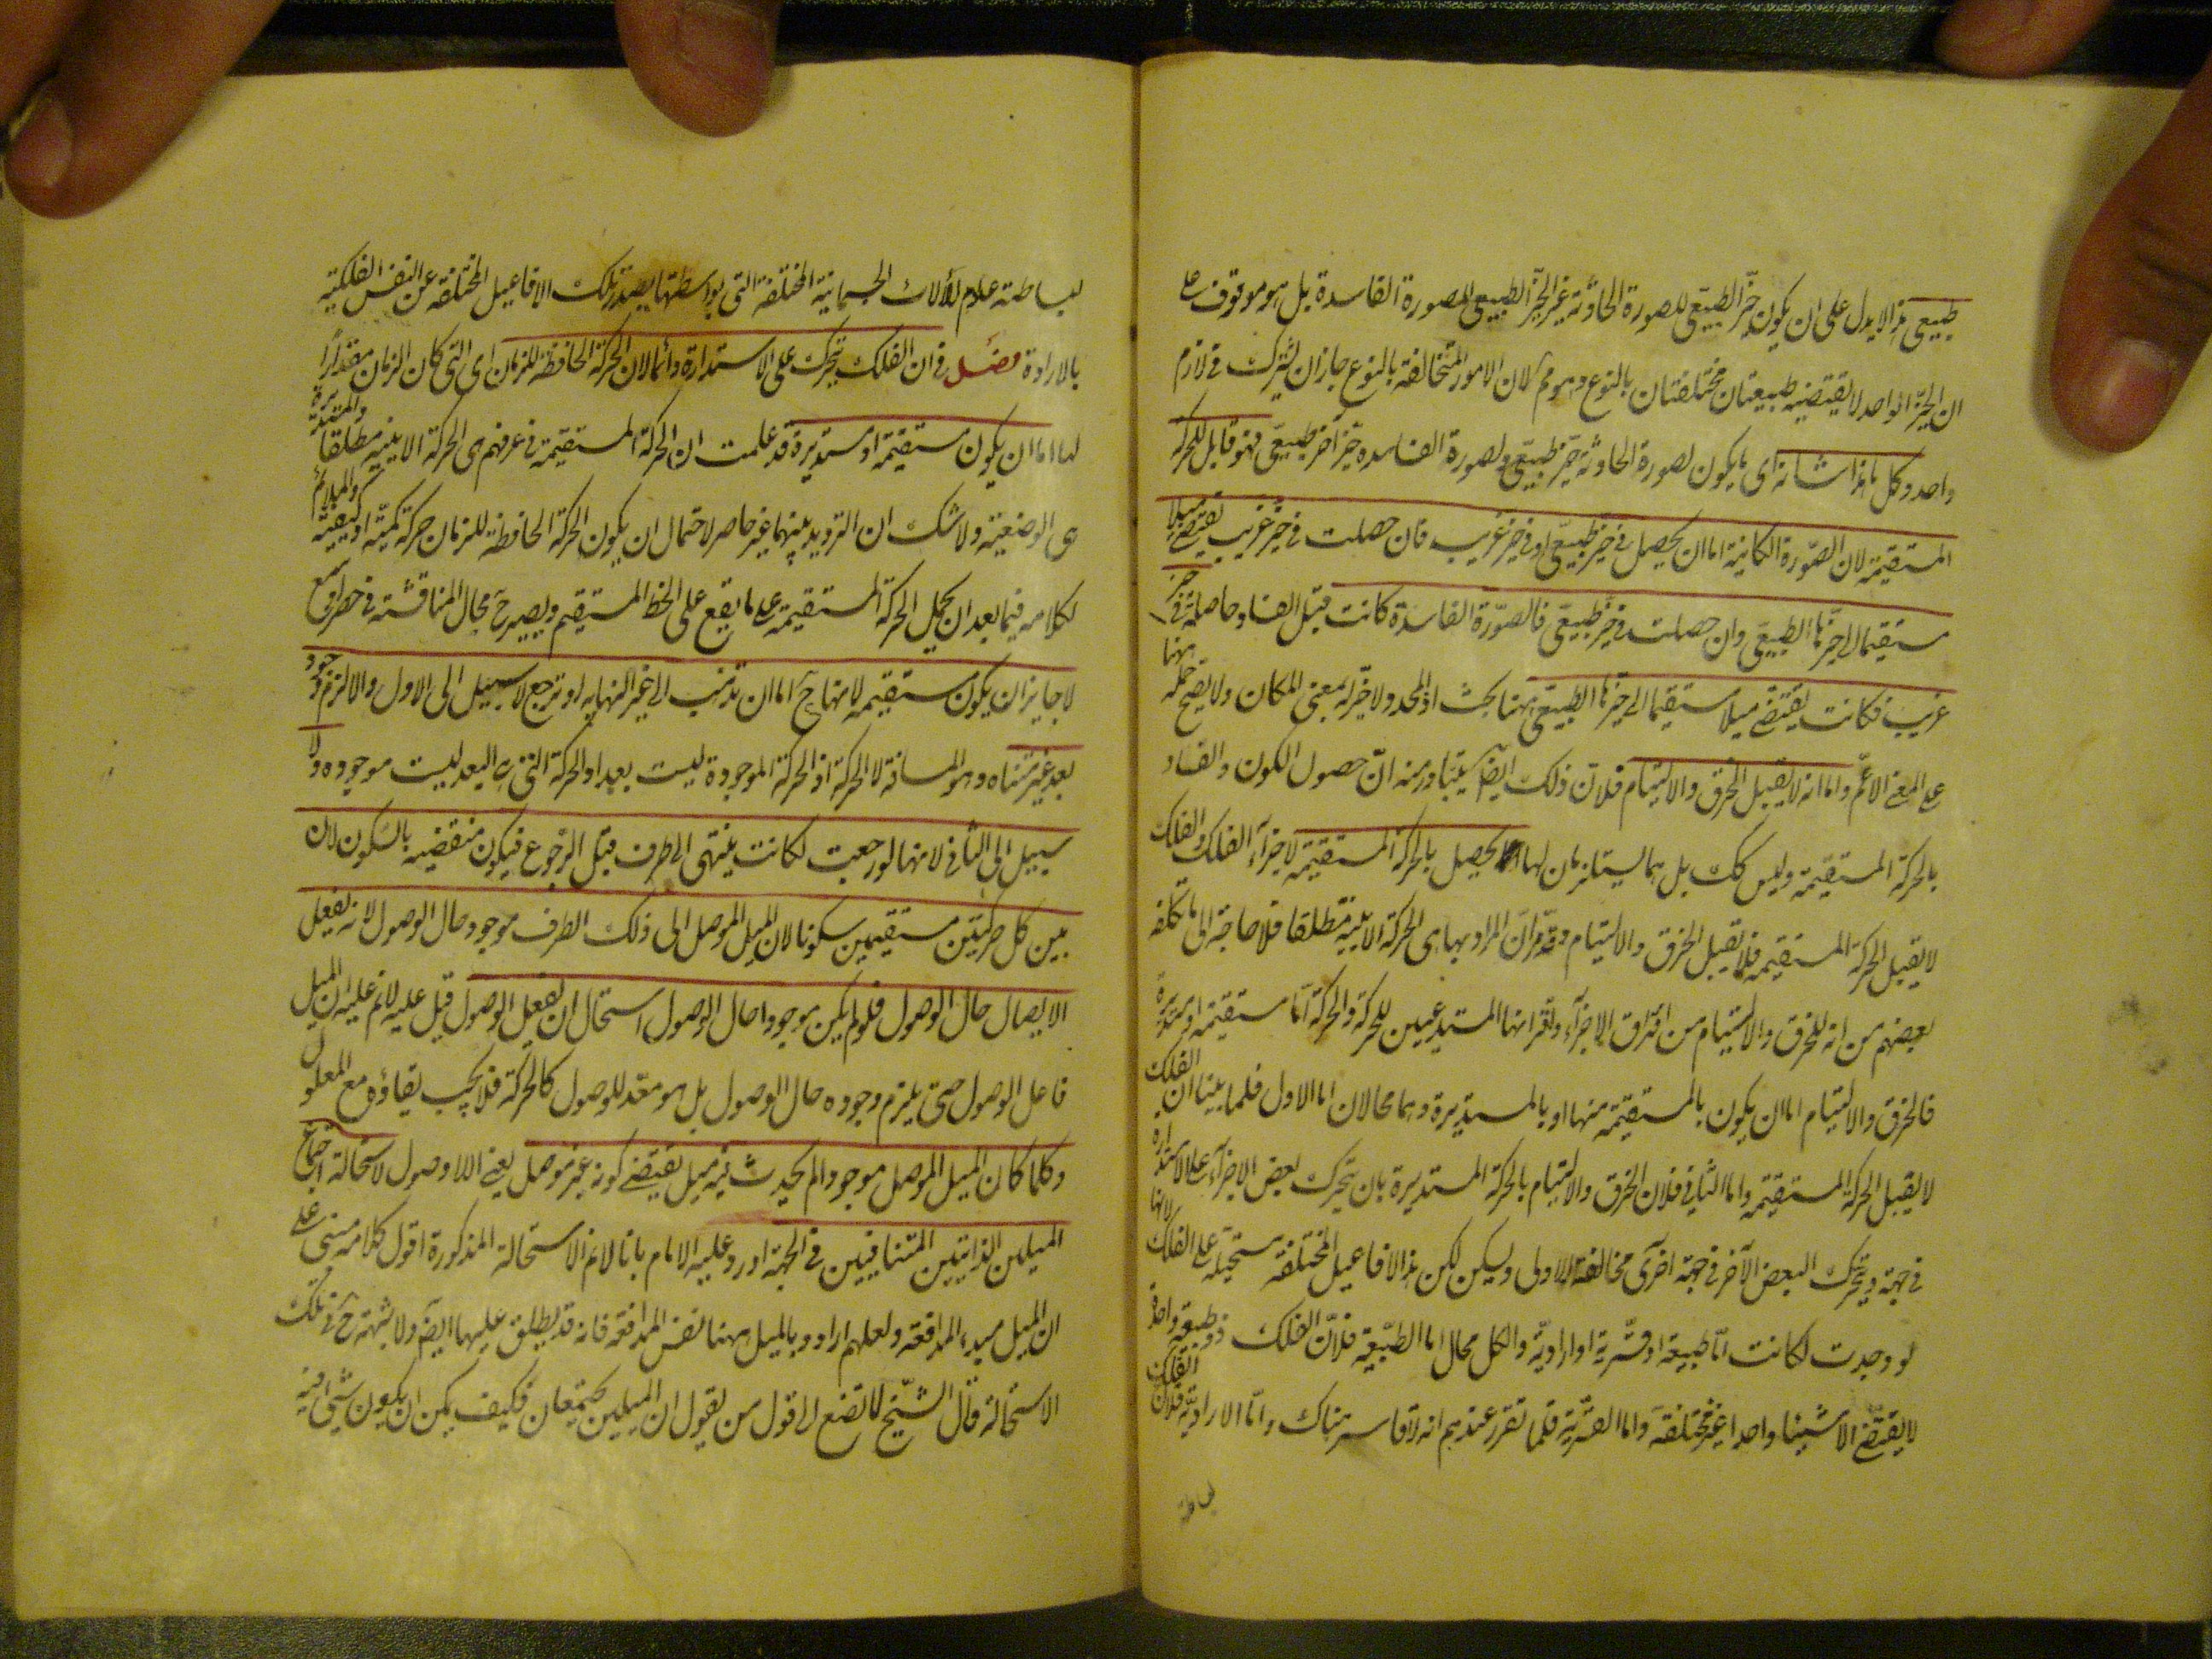 طبيعى هذا لا يدل على ان يكون حيز الطبيعى للصورة الحادثة غير الحيز الطبيعى للصورة الفاسدة بل هو موقوف على
ان الحيز الواحد لا يقتضيه طبيعتان مختلفتان بالنوع وهو مم لان الامور المتخالفة بالنوع جاز ان يشترك فى لازم
واحد وكل ما هذا شانه اى ما يكون لصورة الحادثة حيز طبيعى ولصورة الفاسدة حيز آخر طبيعى فهو قابل للحركة
المستقيمة لان الصورة الكائنة اما ان يحصل فى حيز طبيعى او فى حيز غريب فان حصلت فى حيز غريب يقتضى ميلا
مستقيما الى حيزها الطبيعى وان حصلت فى حيز طبيعى فالصورة الفاسدة كانت قبل الفساد حاصلة فى حيز
غريب فكانت يقتضى ميلا مستقيما الى حيزها الطبيعى ههنا بحث اذ المحدد لا حيز له بمعنى المكان ولا يصح حمله ههنا
على المعنى الاعم واما انه لا يقبل الخرق والالتيام فلان ذلك ايضا يتبادر منه ان حصول الكون والفساد
بالحركة المستقيمة وليس كك بل هما يستلزمان لها انما يحصل بالحركة المستقيمة لاجزآء الفلك والفلك
لا يقبل الحركة المستقيمة فلا يقبل الخرق والالتيام وقد مر ان المراد بها هى الحركة الاينية مطلقا فلا حاجة الى ما تكلفه
بعضهم من انه للخرق والالتيام من افتراق الاجزآء واقترانها المستدعيين للحركة والحركة اما مستقيمة او مستديرة
فالخرق والالتيام اما ان يكون بالمستقيمة منها او بالمستديرة وهما محالان اما الاول فلما بينا ان الفلك
لا يقبل الحركة المستقيمة واما الثانى فلان الخرق والالتيام بالحركة المستديرة بان يتحرك بعض الاجزآء على الاستدارة
فى جهة ويتحرك البعض الآخر فى جهة اخرى مخالفة للاولى او يسكن لكن هذا الافاعيل المختلفة مستحيلة على الفلك لانها
لو وجدت لكانت اما طبيعة او قسرية او ارادية والكل محال اما الطبيعية فلان الفلك ذو طبيعة واحدة
لا يقتضى الا شيئا واحدا غير مختلفة واما القسرية فلما تقرر عندهم انه لا قاسر هناك واما الارادية فلان الفلك
لبساطة
لبساطته عادم للآلات الجسمانية المختلفة التى بواسطتها يصدر تلك الافاعيل المختلفة عن النفس الفلكية
بالارادة فصل فى ان الفلك يتحرك على الاستدارة دائما لان الحركة الحافظة للزمان اى التى كان الزمان مقدارا
لها اما ان يكون مستقيمة او مستديرة قد علمت ان الحركة المستقيمة فى عرفهم هى الحركة الاينية مطلقا والمستديرة
هى الوضعية ولا شك ان الترديد بينهما غير حاصر لاحتمال ان يكون الحركة الحافظة للزمان حركة كمية او كيفية والملائم
لكلامه فيما بعد ان يحمل الحركة المستقيمة على ما يقع على الخط المستقيم ويصير ح مجال المناقشة فى حصر اوسع
لا جايز ان يكون مستقيمة لانها ح اما ان تذهب الى غير النهاية او ترجع لا سبيل الى الاول والا لزم وجود
بعد غير متناه وهو المسافة لا الحركة اذ الحركة الموجودة ليست بعد او الحركة التى هى البعد ليست موجوده ولا
سبيل الى الثانى لانها لو رجعت لكانت ينتهى الى طرف قبل الرجوع فيكون منقضيه بالسكون لان
بين كل حركتين مستقيمتين سكونا لان الميل الموصل الى ذلك الطرف موجود حال الوصول لانه يفعل
الايصال حال الوصول فلو لم يكن موجودا حال الوصول استحال ان يفعل الوصول قيل عليه لانم عليه ان الميل
فاعل الوصول حتى يلزم وجوده حال الوصول بل هو معد للوصول كالحركة فلا يجب بقاؤه مع المعلول
وكلما كان الميل الموصل موجودا لم يحدث فيه ميل يقتضى كونه غير موصل يعنى اللاوصول لاستحالة اجتماع
الميلين الذاتيين المتنافيين فى الجهة اورد عليه الامام بانا لانم الاستحالة المذكورة اقول كلامه مبنى على
ان الميل مبدء المدافعة ولعلهم ارادوا بالميل ههنا نفس المدافعة فانه قد يطلق عليها ايضا ولا شبهة ح فى تلك
الاستحالة قال الشيخ لا تصغ الى قول من يقول ان الميلين يجتمعان فكيف يمكن ان يكون شىء فيه